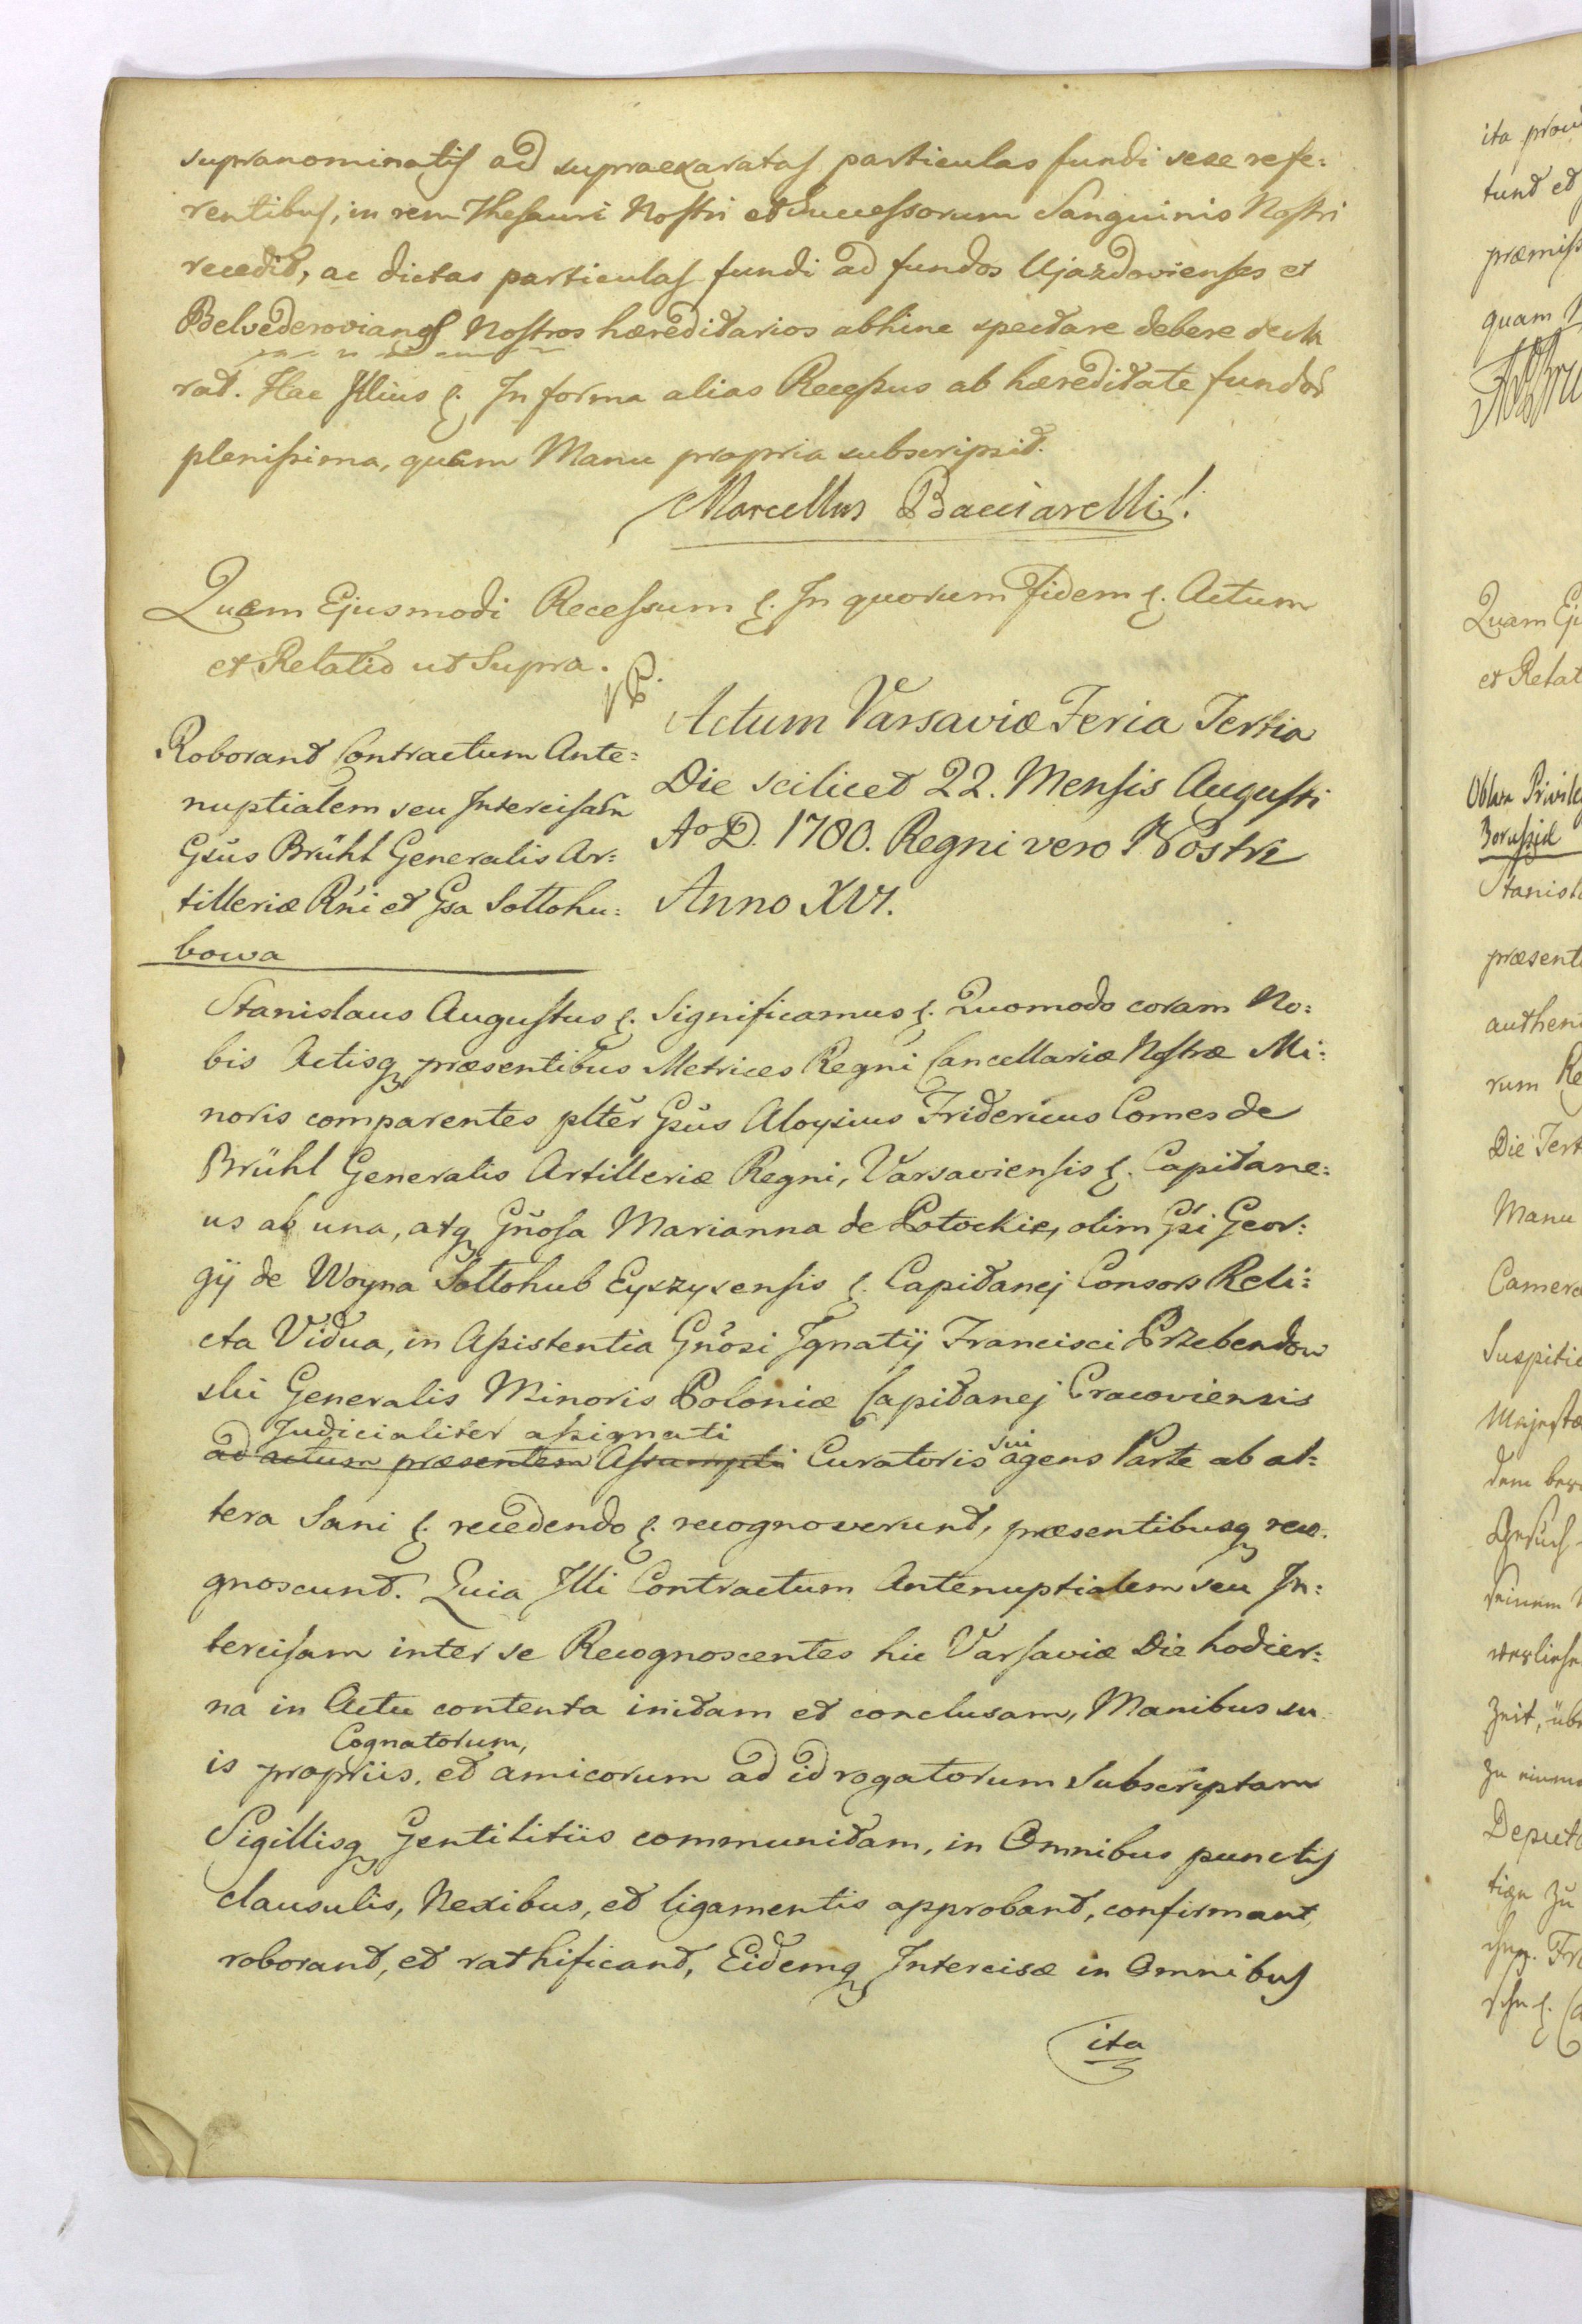 supranominatis ad supraexaratas particulas fundi sese refe:
rentibus, in rem Thesauri Nostri et Successorum Sanguinis Nostri
recedit, ac dictas particulas fundi ad fundos Ujazdovienses et
Belvederovianos Nostros hæreditarios abhinc spectare debere decla
rat. Hac Illius &. In forma alias Recessus ab hæreditate fundor
plenissima, quam Manu propria subscripsit.
Marcellus Bacciarelli.
Quem Ejusmodi Recessum &. In quorum Fidem &. Actum
et Relatio ut Supra.
Roborant Contractum Ante:
nuptialem seu Intercisam
Gsus Brühl Generalis Ar:
tilleriæ Rni et Gsa Sollohu:
bowa
Actum Varsaviæ Feria Tertia
Die scilicet 22. Mensis Augusti
Ao D. 1780. Regni vero Nostri
Anno XVI.
Stanislaus Augustus &. Significamus &. Quomodo coram No:
bis Actisq præsentibus Metrices Regni Cancellariæ Nostræ Mi:
noris comparentes pltêr Gsus Aloysius Fridericus Comes de
Brühl Generalis Artilleriæ Regni, Varsaviensis &. Capitane:
us ab una, atq Gnosa Marianna de Potockie, olim Gsi Geor:
gij de Woyna Sollohub Eyszyszensis &. Capitanej Consors Reli:
cta Vidua, in Assistentia Gnosi Ignatij Francisci Przebendow
ski Generalis Minoris Poloniæ Capitanej Cracoviensis
Judicialiter assignati
ad actum præsentem Assumpti Curatoris sui agens Parte ab al:
tera Sani &. recedendo &. recognoverunt, præsentibusq reco:
gnoscunt. Quia Illi Contractum Antenuptialem seu In:
tercisam inter se Recognoscentes hic Varsaviæ Die hodier:
na in Actu contenta initam et conclusam, Manibus su
Cognatorum,
is propriis. et amicorum ad id rogatorum subscriptam
Sigillisq Gentilitiis communitam, in Omnibus punctis
clausulis, Nexibus, et ligamentis approbant, confirmant,
roborant, et rathificant, Eidemq Intercisæ in Omnibus
ita